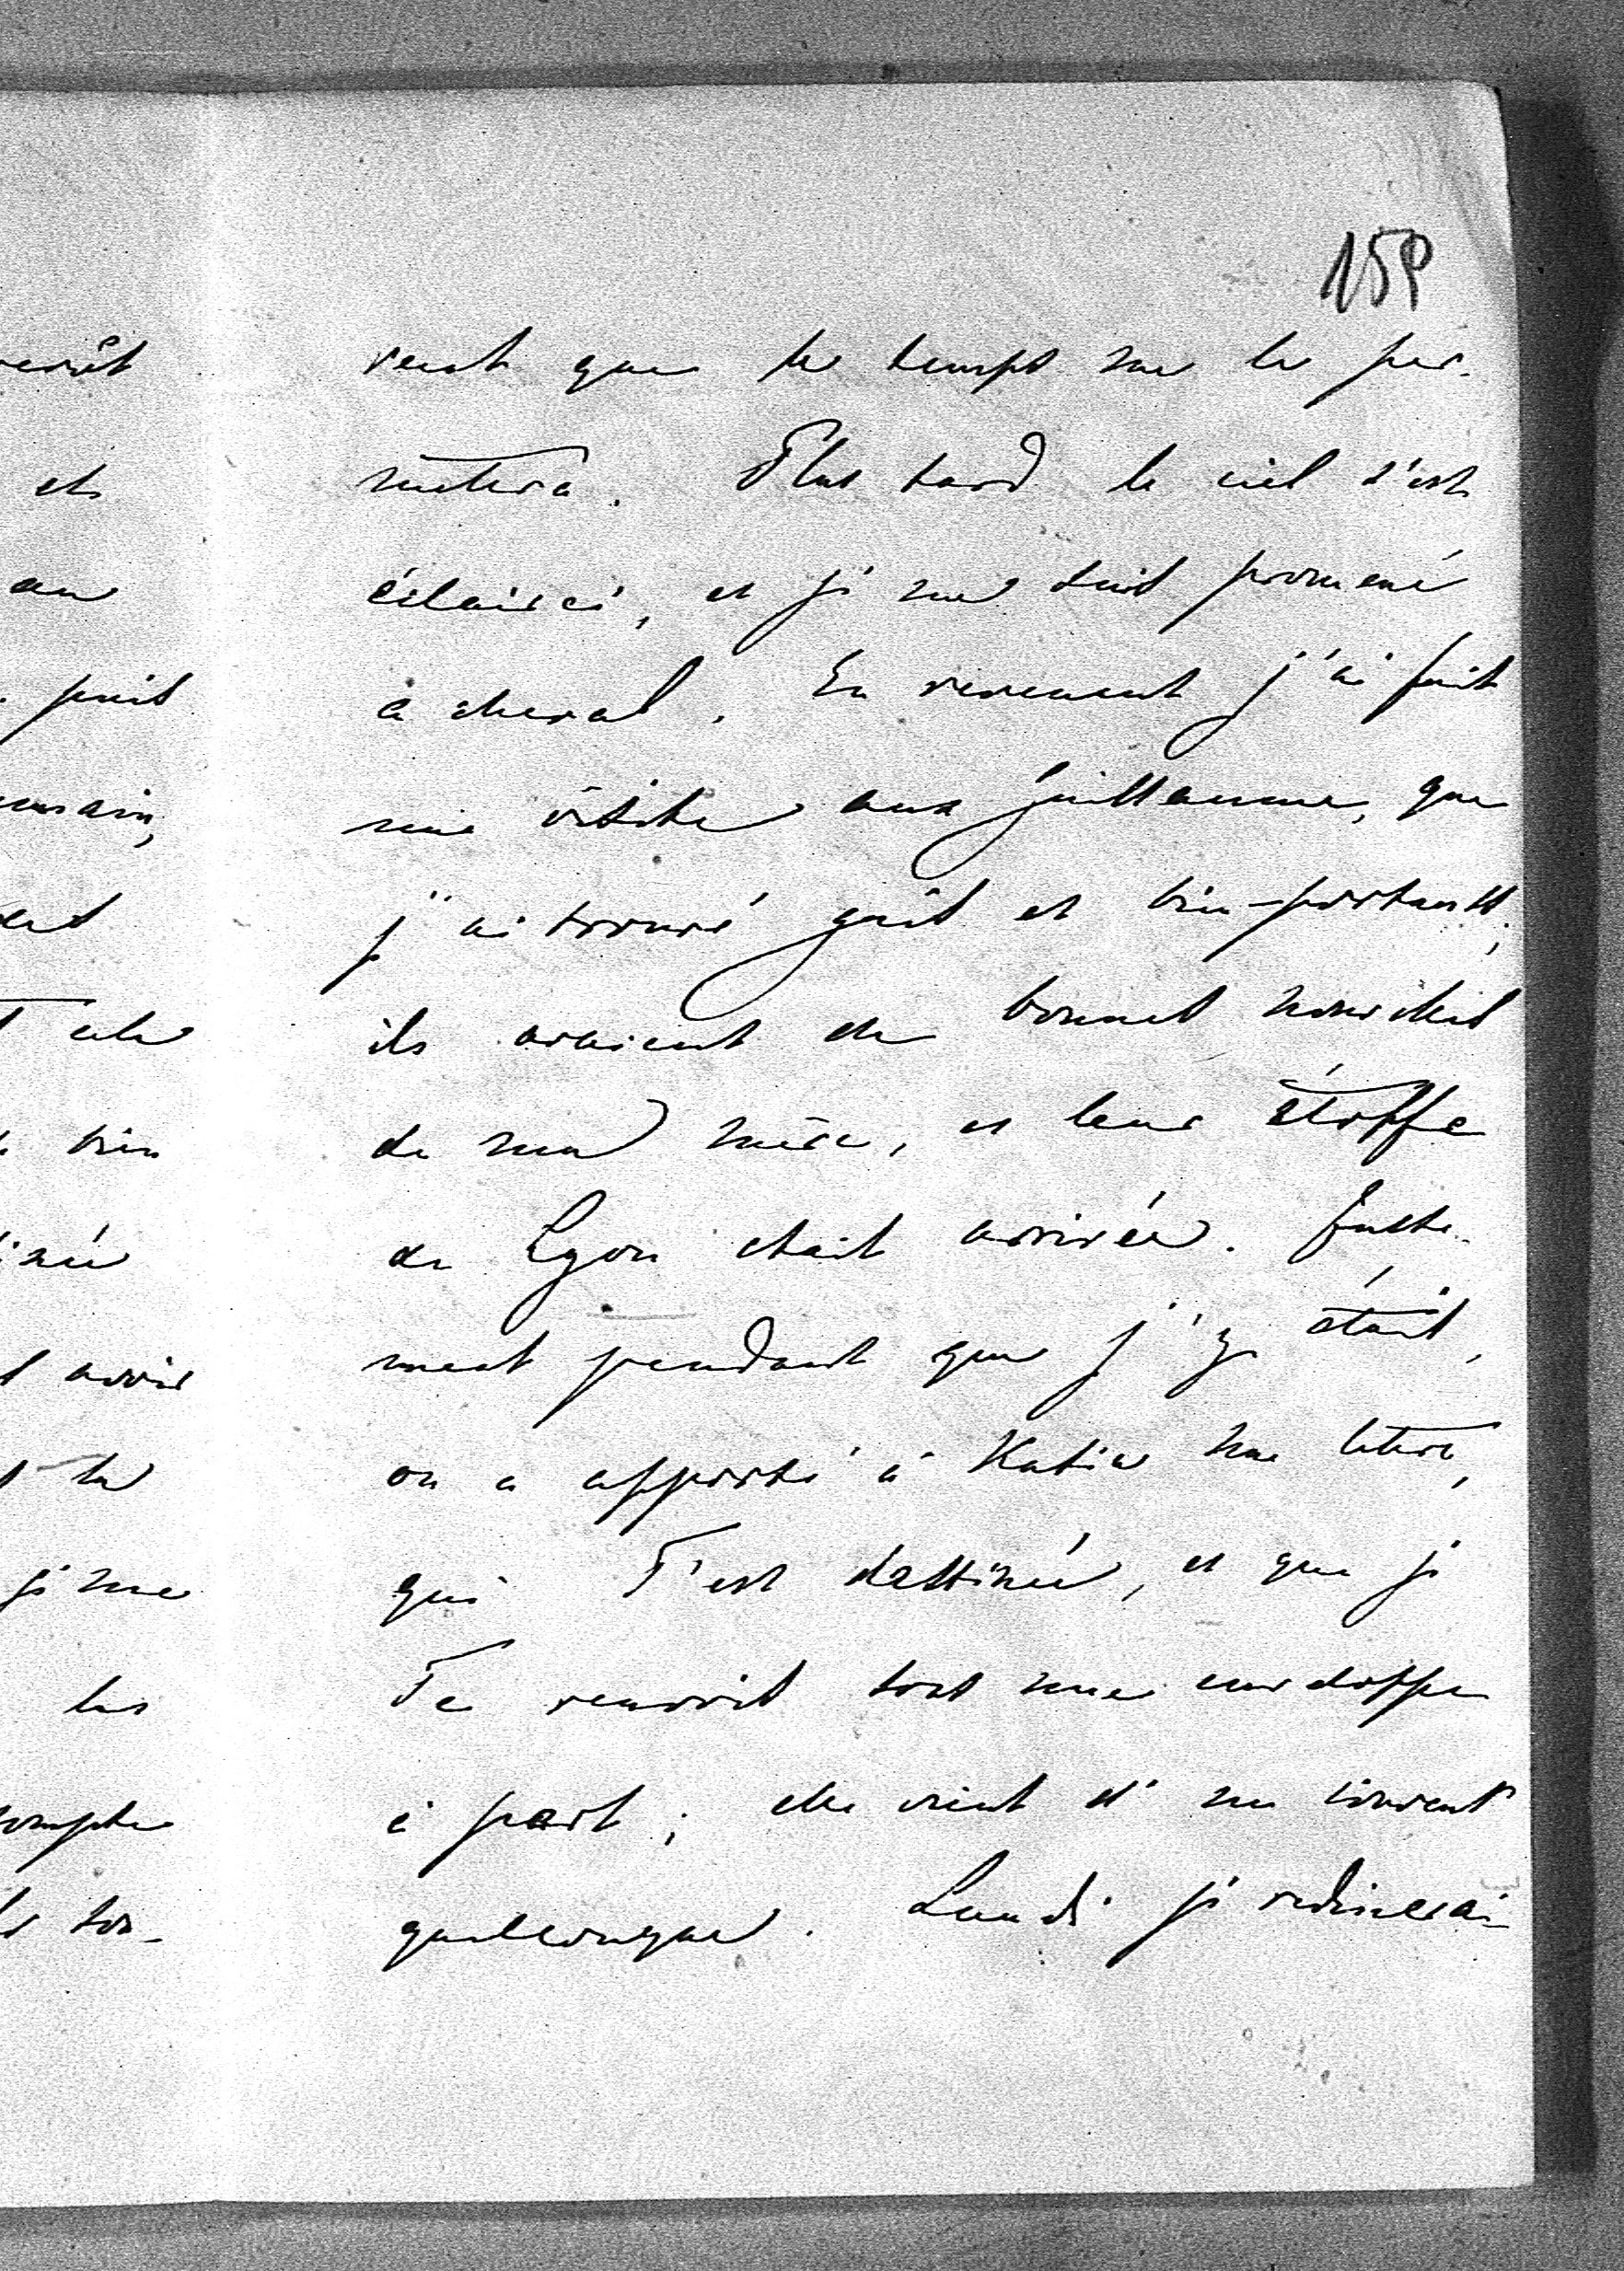 159
vent que le temps me le per-
mettra. Plus tard le ciel s'est
éclairci, et je me suis promené
à cheval. En revenant j'ai fait
une visite aux Guillaume, que
j'ai trouvé gais et bien-portants;
ils avaient de bonnes nouvelles
de ma mère, et leur étoffe
de Lyon était arrivée. Juste-
ment pendant que j'y étais,
on a apporté à Katia une lettre,
qui T'est destinée, et que je
Te renvois sous une enveloppe
à part; elle vient d'un couvent
quelconque. Lundi je redinerai
et
au
puis
cela
bien
avoir
la
je me
les